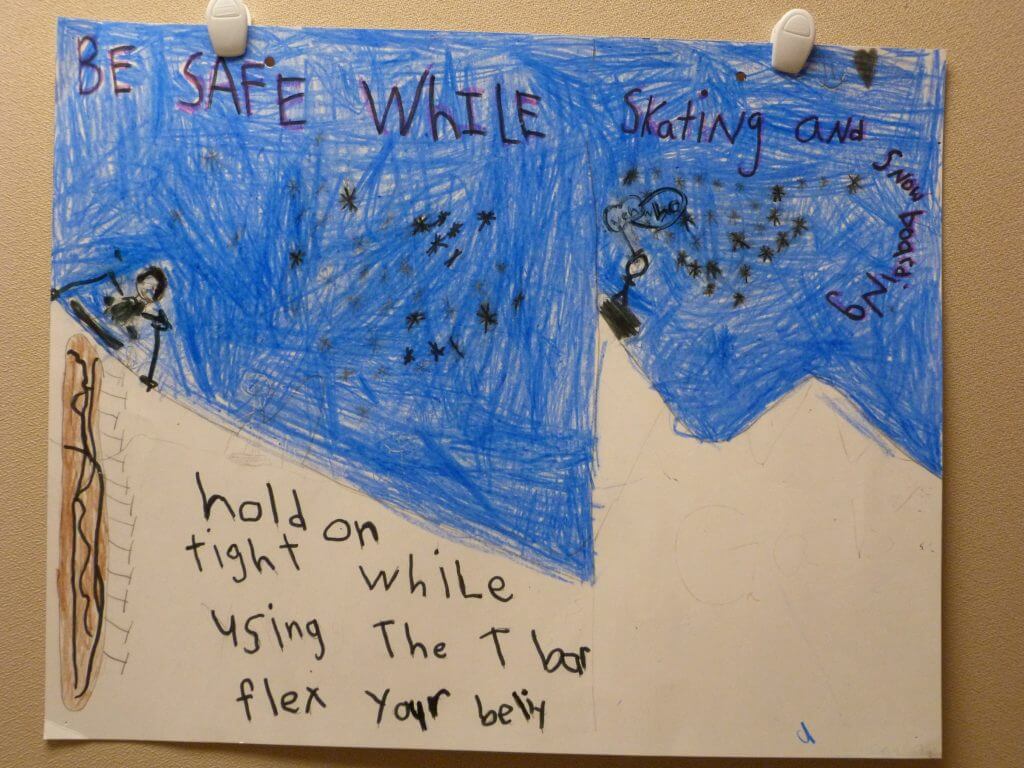 BE SAFE WHILE SKatiNg aNd
SNOW boardiNg
hold on
tight while
using The T bar
flex your belly